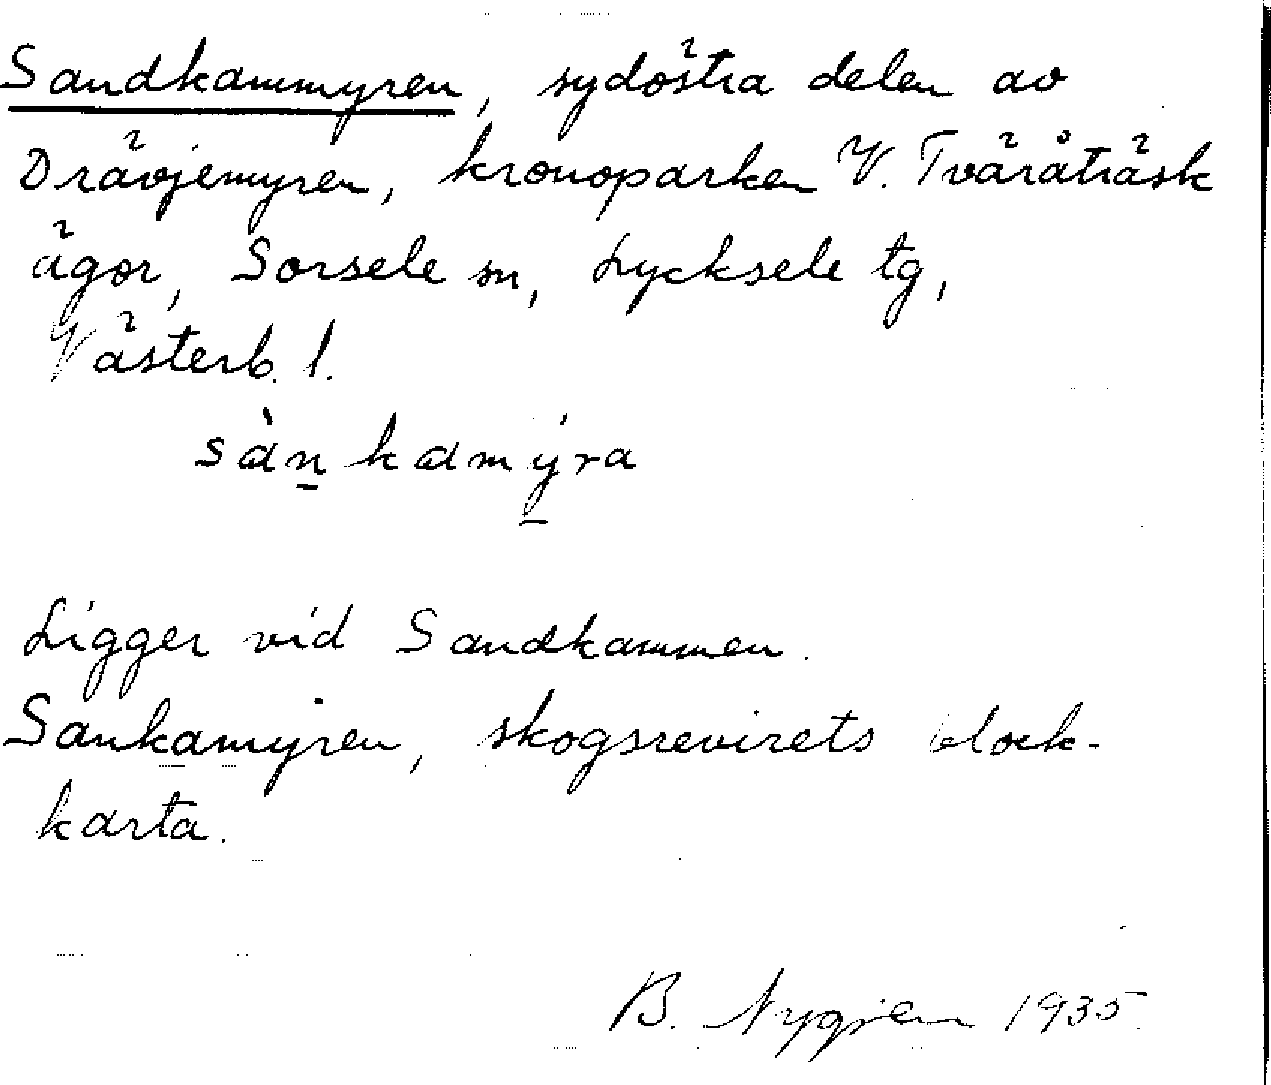 Sandkammyren, sydöstra delen av
Drävjemyren, kronoparken V. Tväråträsk
ägor, Sorsele sn, Lycksele tg,
Västerb. l.
sàn̲kamý̲ra
Ligger vid Sandkammen.
Sankamyren, skogsrevirets block-
karta.
B. Nygren 1935.